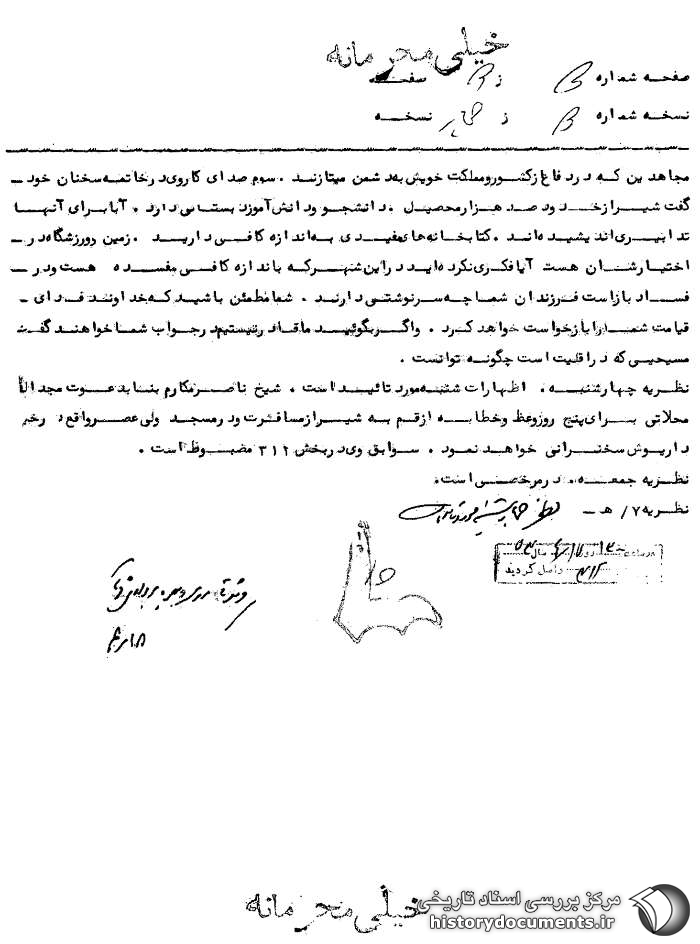 خیلی محرمانه
صفحه شماره ۳ از ۳ صفحه
نسخه شماره ۳ از چهار نسخه
مجاهدین که در دفاع از کشور و مملکت خویش به دشمن میتازند . سوم صدای کاروی در خاتمه سخنان خود
گفت شیراز حدود صد هزار محصل ، دانشجو و دانش آموز دبستانی دارد . آیا برای آنها
تدابیری اندیشیده اند . کتابخانه های مفیدی به اندازه کافی دارید . زمین ورزشگاه در
اختیارشان هست آیا فکری نکرده اید در این شهر که باندازه کافی مفسده هست و در
فساد باز است فرزندان شما چه سرنوشتی دارند . شما مطمئن باشید که خداوند فردای
قیامت شما را بازخواست خواهد کرد . و اگر بگوئید ما قادر نیستیم در جواب شما خواهند گفت
مسیحیی که در اقلیت است چگونه توانست .
نظریه چهارشنبه . اظهارات شنبه مورد تائید است . شیخ ناصر مکارم بنا بدعوت مجدالدین
محلاتی برای پنج روز وعظ و خطابه از قم به شیراز مسافرت و در مسجد ولی عصر واقع در خیر
داریوش سخنرانی خواهد نمود . سوابق وی در بخش ۳۱۲ مضبوط است .
نظریه جمعه . در مرخصی است .
نظریه ۷ / ه‍ - نظریه چهارشنبه مورد تائید است
در ساعت روز سال ۵۳
۳۱۲ واصل گردید
خیلی محرمانه
مرکز بررسی اسناد تاریخی
historydocuments.ir